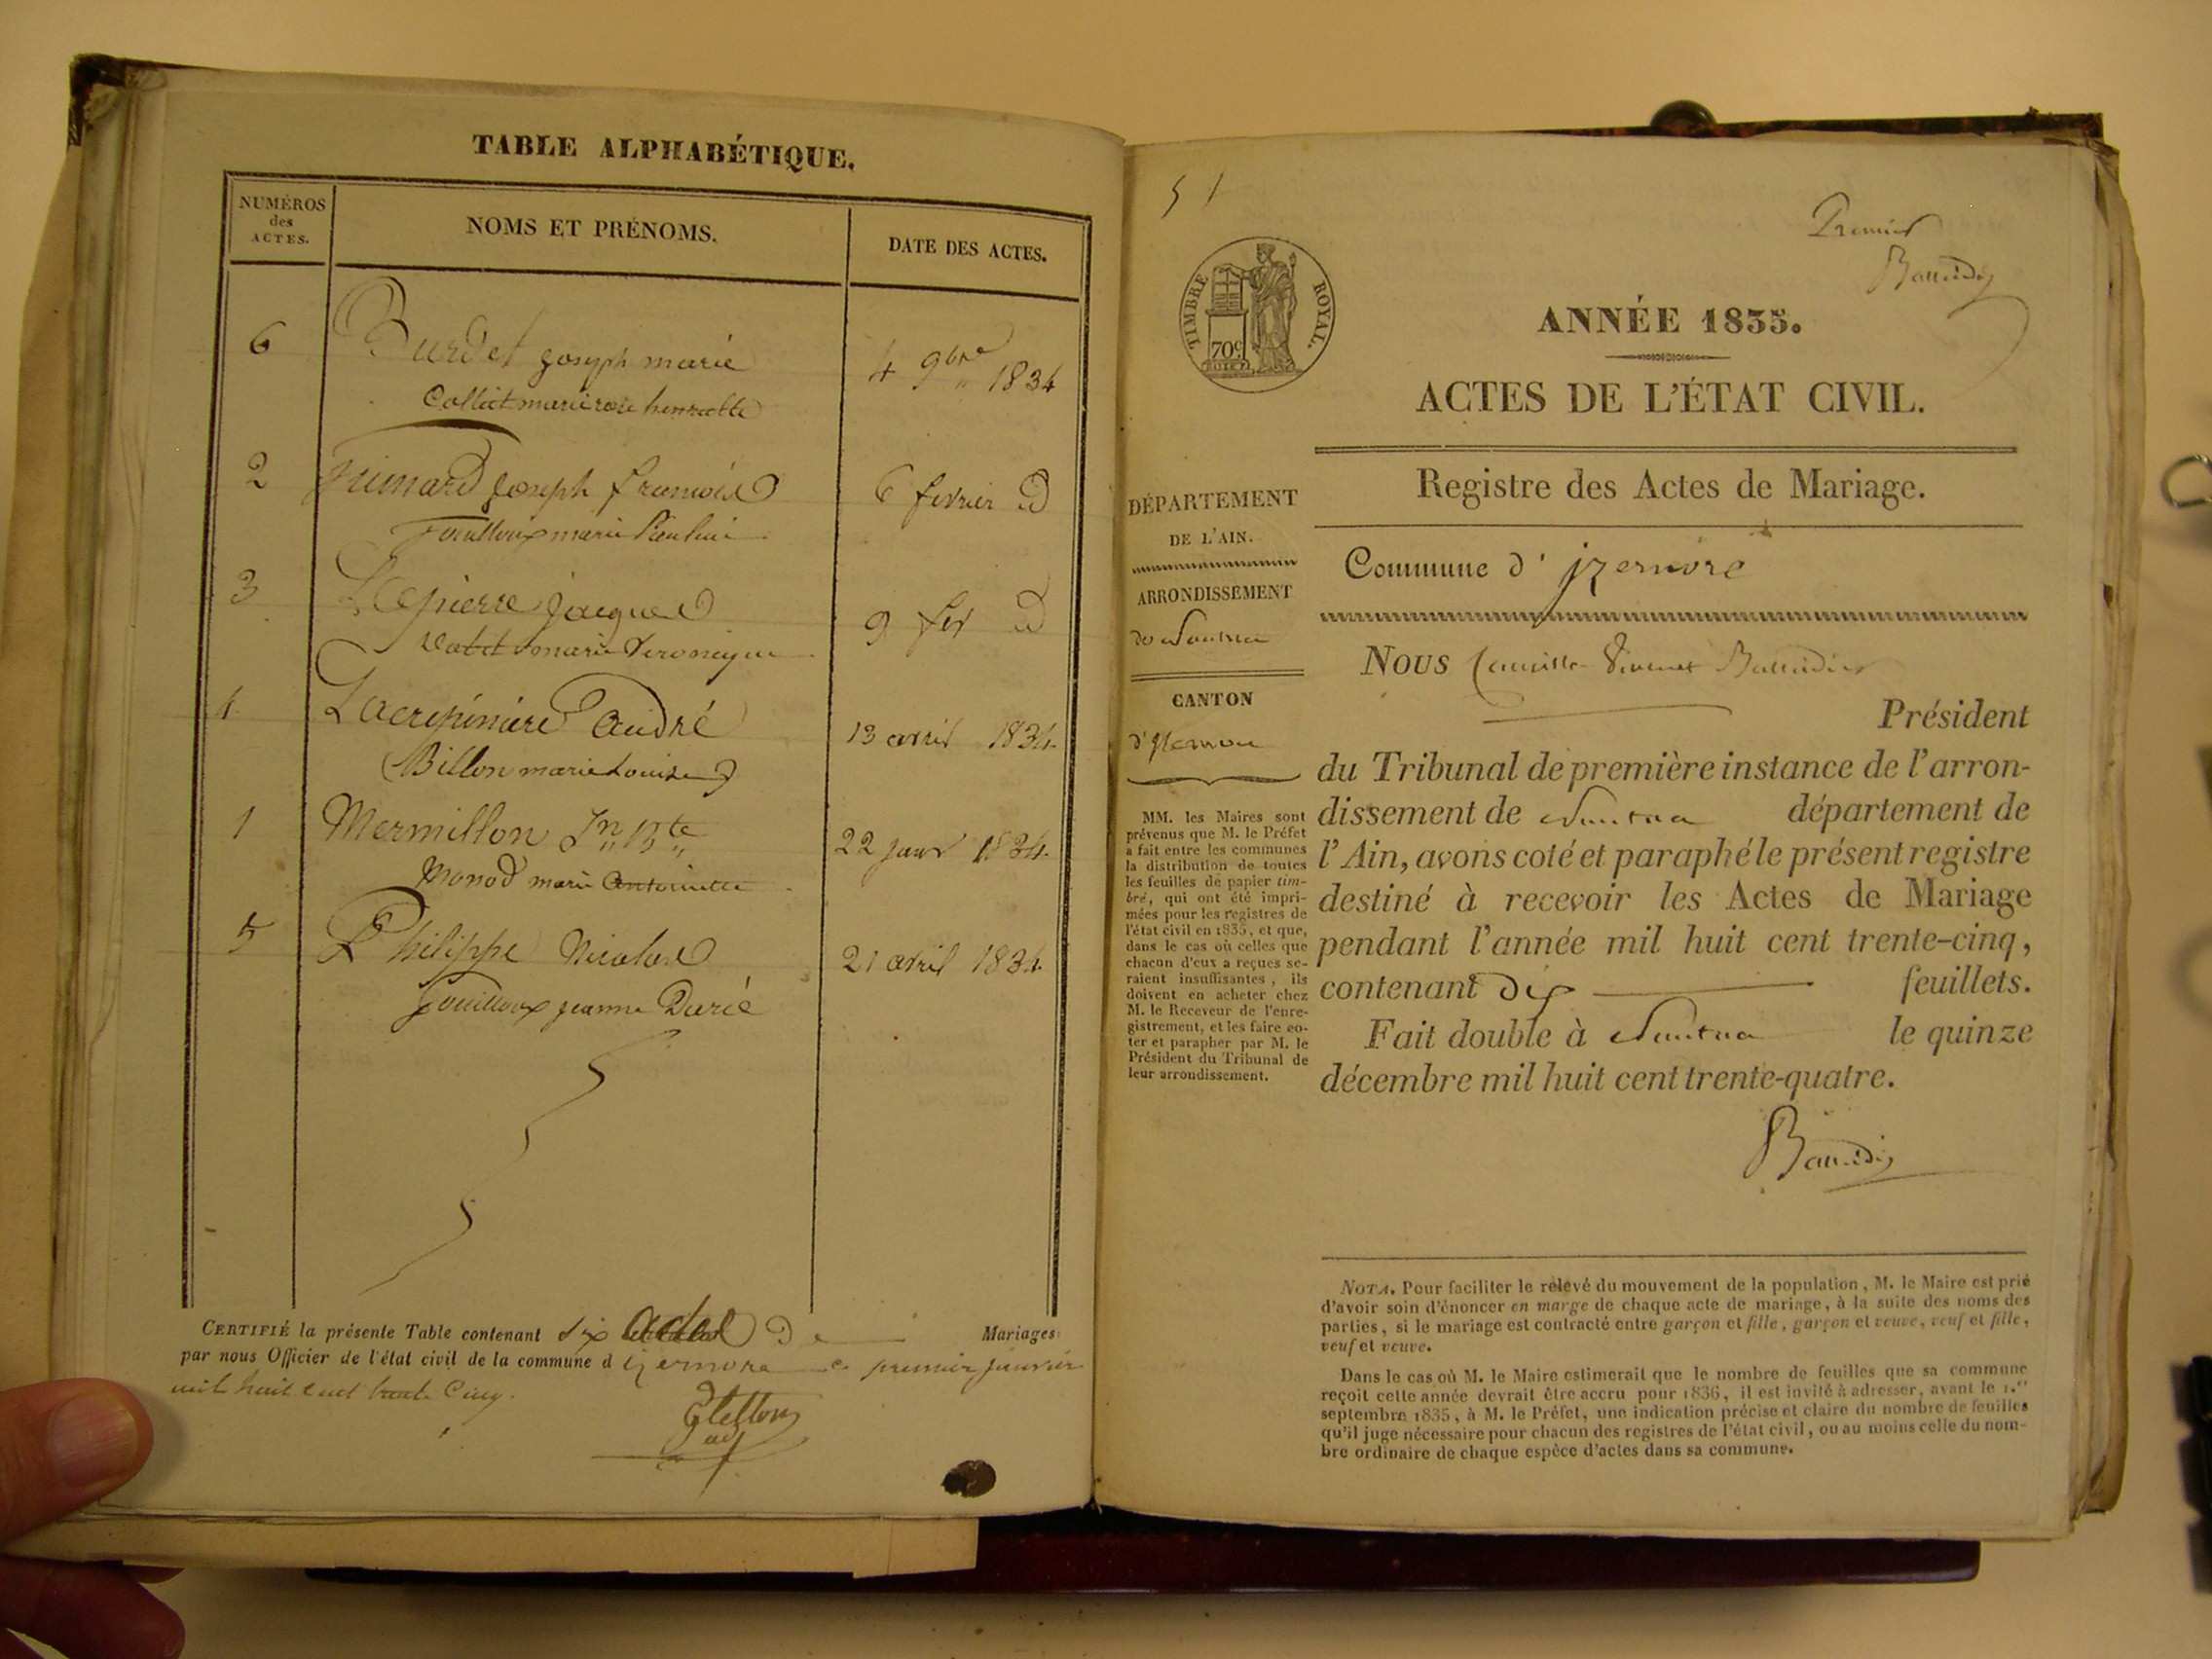 TABLE ALPHABÉTIQUE.
NUMÉROS
des
ACTES.
NOMS ET PRÉNOMS.
DATE DES ACTES.
6 Burdet joseph marie 4 9bre 1834
Collet marie rose henriette
2 joseph françois 6 fevrier D
Fouilloux marie
3 Lepierre jacques 9 fev D
marie Veronique
4 Lacrepiniere André 13 avril 1834.
Billon marie Louise
1 Mermillon Jn Bte 22 janv 1834.
Monod marie Antoinette
5 Philippe Nicolas 21 avril 1834
Fouilloux jeanne
CERTIFIÉ la présente Table contenant six actes De Mariages
par nous Officier de l'état civil de la commune d'izernore ce premier janvier
mil huit cent trente Cinq.
51
Premier
TIMBRE ROYAL.
70c
ANNÉE 1835.
ACTES DE L'ÉTAT CIVIL.
Registre des Actes de Mariage.
DÉPARTEMENT
DE L'AIN.
ARRONDISSEMENT
de Nantua
CANTON
d'izernore
MM. les Maires sont
prévenus que M. le Préfet
a fait entre les communes
la distribution de toutes
les feuilles de papier tim-
bré, qui ont été impri-
mées pour les registres de
l'état civil en 1835, et que,
dans le cas où celles que
chacun d'eux a reçues se-
raient insuffisantes, ils
doivent en acheter chez
M. le Receveur de l'enre-
gistrement, et les faire co-
ter et parapher par M. le
Président du Tribunal de
leur arrondissement.
Commune d'izernore
Nous Camille Vincent
Président
du Tribunal de première instance de l'arron-
dissement de Nantua département de
l'Ain, avons coté et paraphé le présent registre
destiné à recevoir les Actes de Mariage
pendant l'année mil huit cent trente-cinq,
contenant dix feuillets.
Fait double à Nantua le quinze
décembre mil huit cent trente-quatre.
NOTA. Pour faciliter le relevé du mouvement de la population, M. le Maire est prié
d'avoir soin d'énoncer en marge de chaque acte de mariage, à la suite des noms des
parties, si le mariage est contracté entre garçon et fille, garçon et veuve, veuf et fille,
veuf et veuve.
Dans le cas où M. le Maire estimerait que le nombre de feuilles que sa commune
reçoit cette année devrait être accru pour 1836, il est invité à adresser, avant le 1.er
septembre 1835, à M. le Préfet, une indication précise et claire du nombre de feuilles
qu'il juge nécessaire pour chacun des registres de l'état civil, ou au moins celle du nom-
bre ordinaire de chaque espèce d'actes dans sa commune.